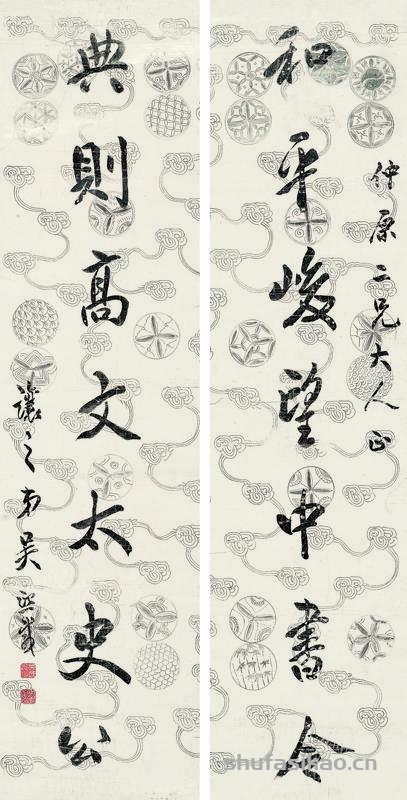 仲原二兄大人正
和平峻望中書令
典則高文太史公
讓之弟吳熙載